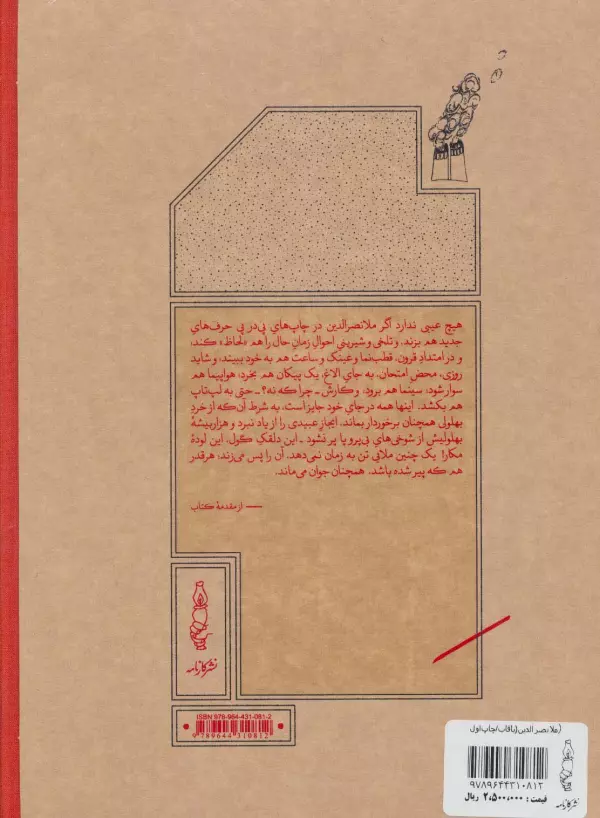 هیچ عیبی ندارد اگر ملانصرالدین در چاپ‌های پی‌در پی حرف‌های
جدید هم بزند. و تلخی و شیرینیِ احوالِ زمانِ حال را هم «لحاظ» کند؛
و در امتدادِ قرون، قطب‌نما و عینک و ساعت هم به خود ببیند؛ و شاید
روزی، محضِ امتحان، به جایِ الاغ، یک پیکان هم بخرد؛ هواپیما هم
سوار شود؛ سینما هم برود؛ و کارش ـ چرا که نه؟ ـ حتی به لپ‌تاپ
هم بکشد. اینها همه در جای خود جایز است، به شرط آن‌که از خردِ
بهلولی همچنان برخوردار بماند، ایجازِ عبیدی را از یاد نبرد و هزاربیشهٔ
بهلولیش از شوخی‌های بی‌پروا پر نشود ـ این دلقکِ گول، این لودهٔ
مکار! یک چنین ملایی تن به زمان نمی‌دهد، آن را پس می‌زند؛ هرقدر
هم که پیر شده باشد، همچنان جوان می‌ماند.
— از مقدمهٔ کتاب
نشر کارنامه
ISBN 978-964-431-081-2
9 789644 310812
(ملا نصرالدین(باقاب/چاپ اول
۹۷۸۹۶۴۴۳۱۰۸۱۲
قیمت : ۲،۵۰۰،۰۰۰ ریال
نشر کارنامه